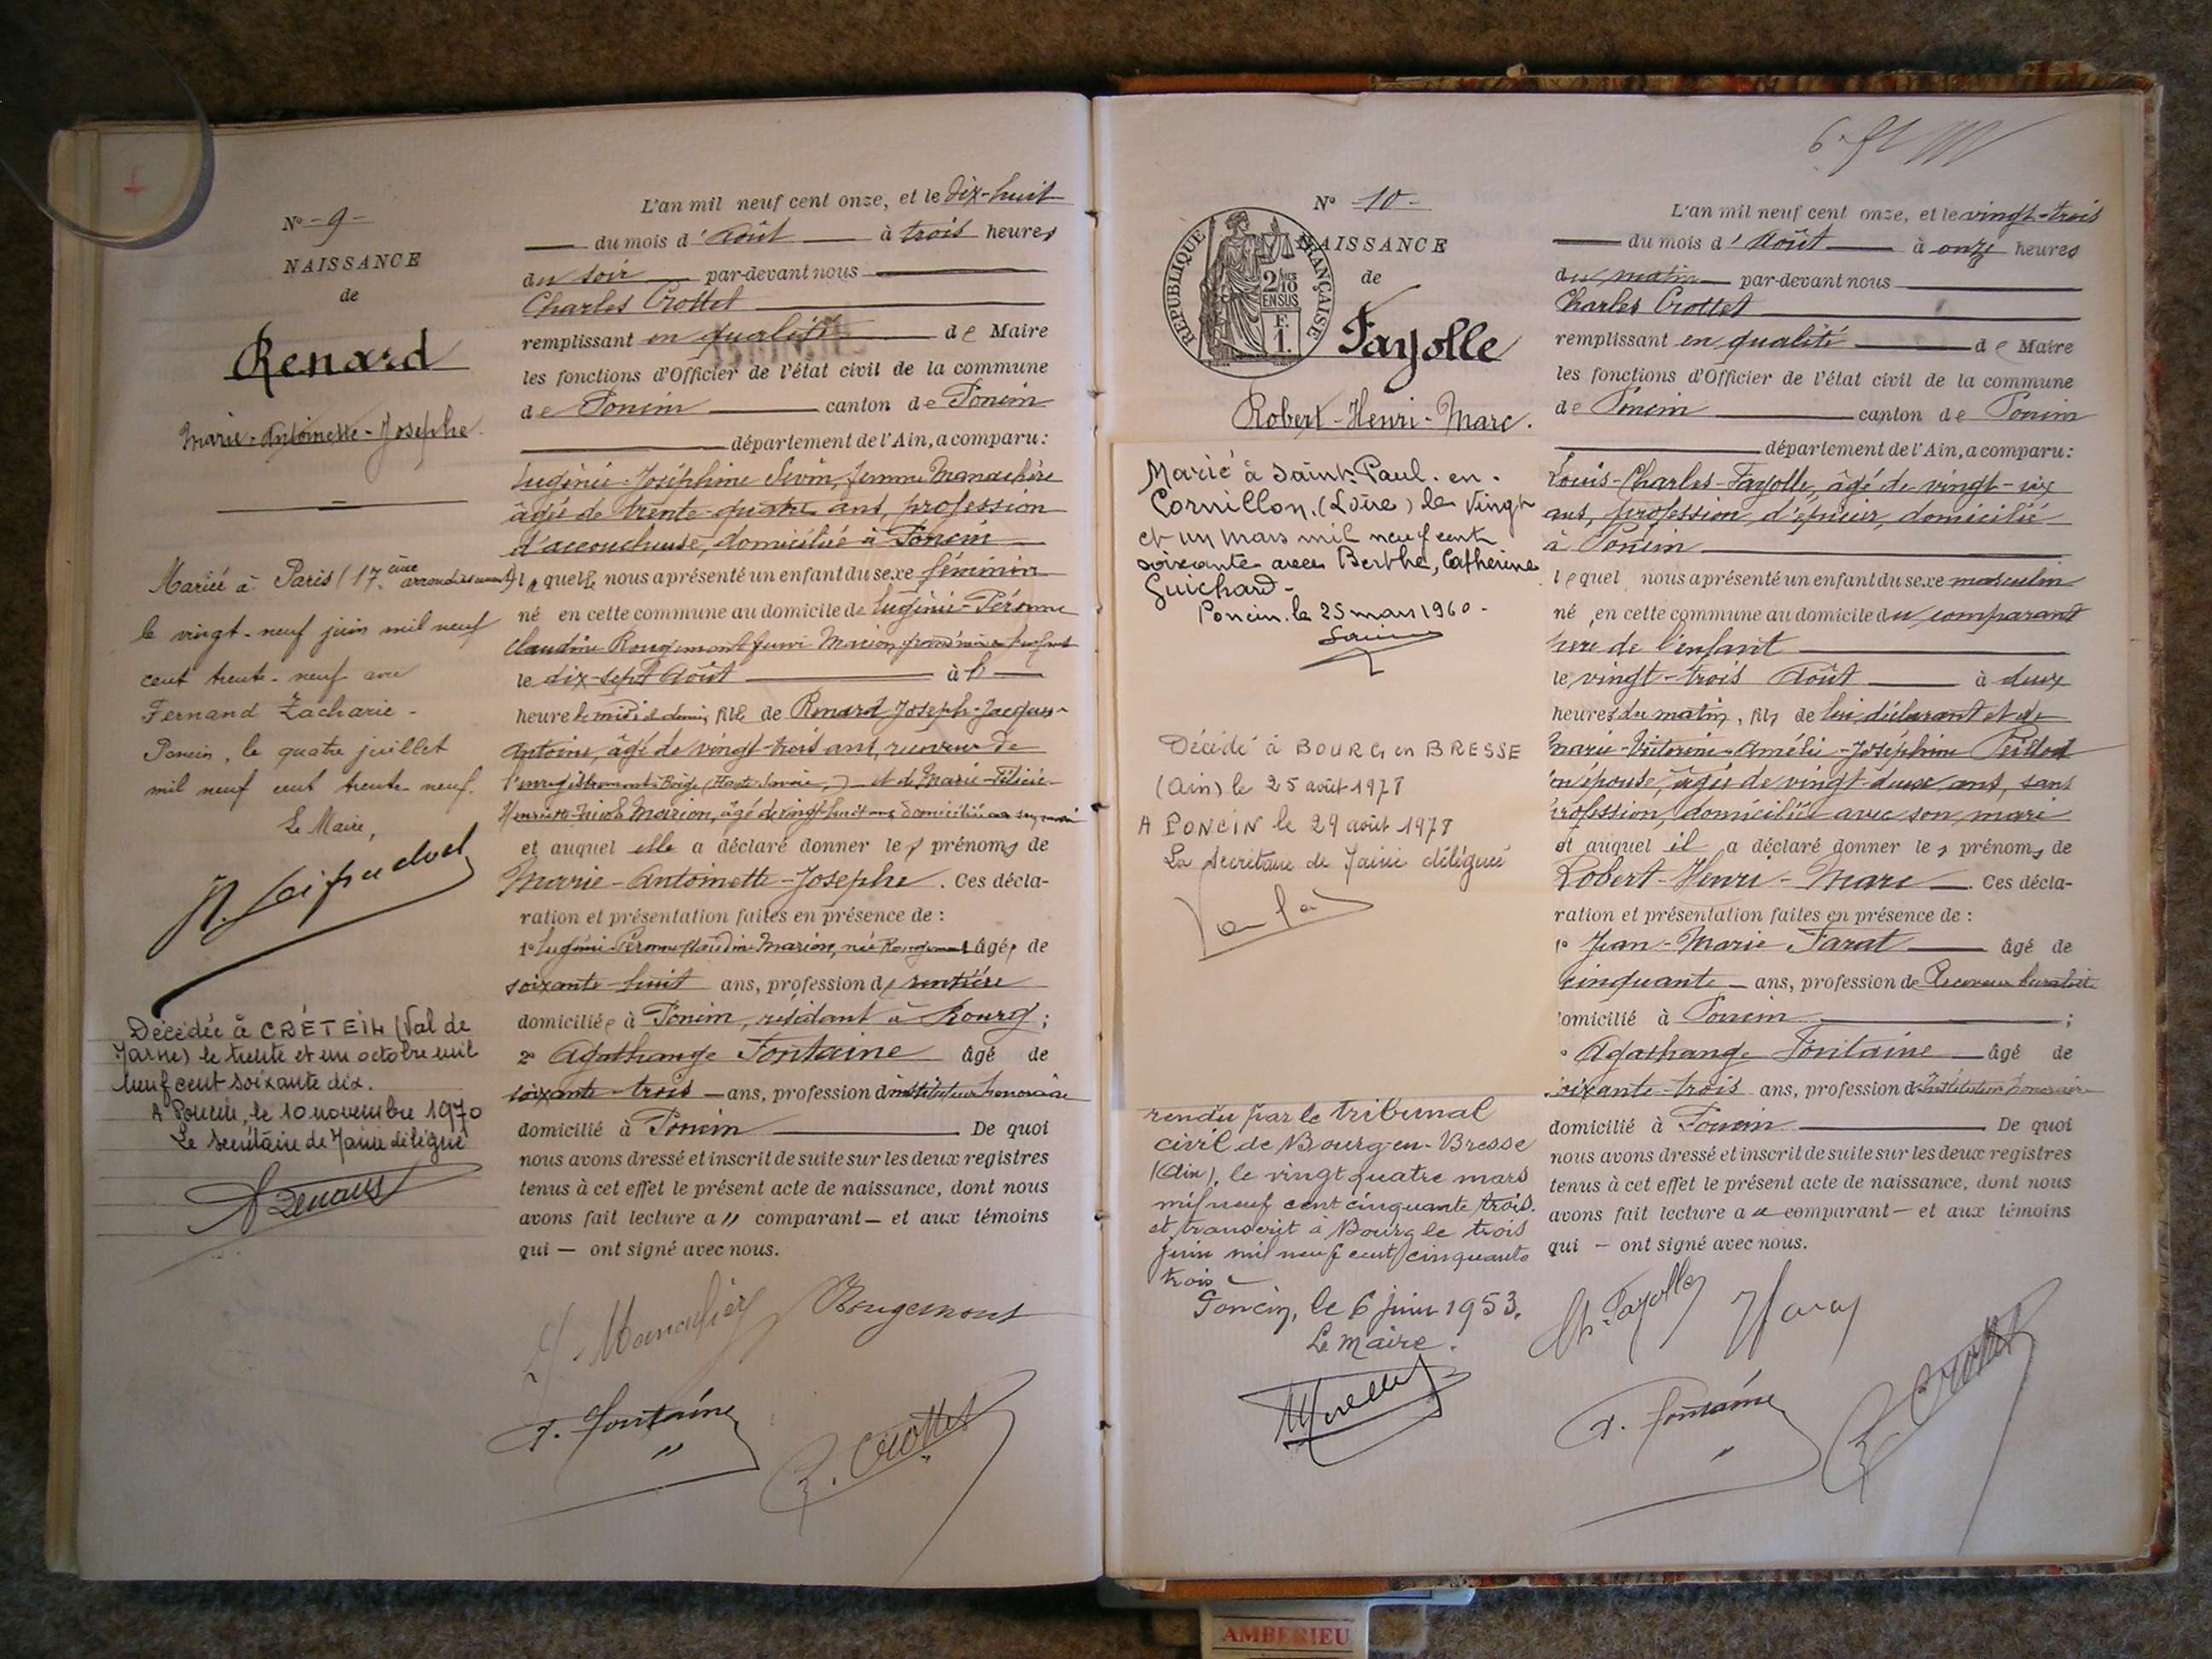 N° - 9 -
NAISSANCE
de
Renard
Marie-Antoinette-Josephe
Mariée à Paris (17ème arrondissement)
le vingt-neuf juin mil neuf
cent trente-neuf avec
Fernand Zacharie -
Poncin, le quatre juillet
mil neuf cent trente-neuf.
Le Maire,
Décédée à CRÉTEIL (Val de
Marne) le trente et un octobre mil
neuf cent soixante dix.
A Poncin, le 10 novembre 1970
Le Secrétaire de Mairie délégué
L'an mil neuf cent onze, et le dix-huit
du mois d'Août à trois heures
du soir par-devant nous
Charles Crottet
remplissant en qualité de Maire
les fonctions d'Officier de l'état civil de la commune
de Poncin canton de Poncin
département de l'Ain, a comparu :
Eugénie-Joséphine Sevin, femme Manachère
âgée de trente-quatre ans, profession
d'accoucheuse, domiciliée à Poncin
laquelle nous a présenté un enfant du sexe féminin
né en cette commune au domicile de Eugénie-Péronne
Claudine Rougemont grand'mère
le dix-sept Août à
heure fille de Renard Joseph-Jacques-
Antoine, âgé de vingt-trois ans, receveur de
l'enregistrement (Haute Savoie,) et de Marie-Félicie
Marion, âgée de vingt-huit ans
et auquel elle a déclaré donner les prénoms de
Marie-Antoinette-Josephe. Ces décla-
ration et présentation faites en présence de :
1° Eugénie-Péronne Claudine Marion, née Rougemont âgée de
soixante-huit ans, profession de rentière
domiciliée à Poncin, résidant à Bourg ;
2° Agathange Fontaine âgé de
soixante-trois ans, profession d'instituteur honoraire
domicilié à Poncin De quoi
nous avons dressé et inscrit de suite sur les deux registres
tenus à cet effet le présent acte de naissance, dont nous
avons fait lecture a " comparant — et aux témoins
qui — ont signé avec nous.
Rougemont
A. Fontaine
C. Crottet
N° - 10 -
REPUBLIQUE FRANÇAISE
2/10 EN SUS
F. 1.
NAISSANCE
de
Fayolle
Robert-Henri-Marc.
Marié à Saint-Paul-en-
Cornillon, (Loire) le vingt
et un mars mil neuf cent
soixante avec Berthe, Catherine
Guichard -
Poncin, le 25 mars 1960 -
Décédé à BOURG en BRESSE
(Ain) le 25 août 1978
A PONCIN le 29 août 1978
La Secrétaire de Mairie déléguée
rendu par le tribunal
civil de Bourg-en-Bresse
(Ain), le vingt quatre mars
mil neuf cent cinquante trois.
et transcrit à Bourg le trois
juin mil neuf cent cinquante
trois -
Poncin, le 6 juin 1953.
Le Maire.
L'an mil neuf cent onze, et le vingt-trois
du mois d'Août à onze heures
du matin par-devant nous
Charles Crottet
remplissant en qualité de Maire
les fonctions d'Officier de l'état civil de la commune
de Poncin canton de Poncin
département de l'Ain, a comparu :
Louis-Charles-Fayolle, âgé de vingt-six
ans, profession d'épicier, domicilié
à Poncin
lequel nous a présenté un enfant du sexe masculin
né en cette commune au domicile du comparant
père de l'enfant
le vingt-trois Août à deux
heures du matin, fils de lui, déclarant et de
Marie-Victorine-Amélie-Joséphine Peillod
son épouse, âgée de vingt-deux ans, sans
profession, domiciliée avec son mari
et auquel il a déclaré donner les prénoms de
Robert-Henri-Marc. Ces décla-
ration et présentation faites en présence de :
1° Jean-Marie Farat âgé de
cinquante ans, profession de Receveur buraliste
domicilié à Poncin ;
Agathange Fontaine âgé de
soixante-trois ans, profession d'Instituteur honoraire
domicilié à Poncin De quoi
nous avons dressé et inscrit de suite sur les deux registres
tenus à cet effet le présent acte de naissance, dont nous
avons fait lecture au comparant — et aux témoins
qui — ont signé avec nous.
Ch. Fayolle
A. Fontaine
C. Crottet
AMBERIEU